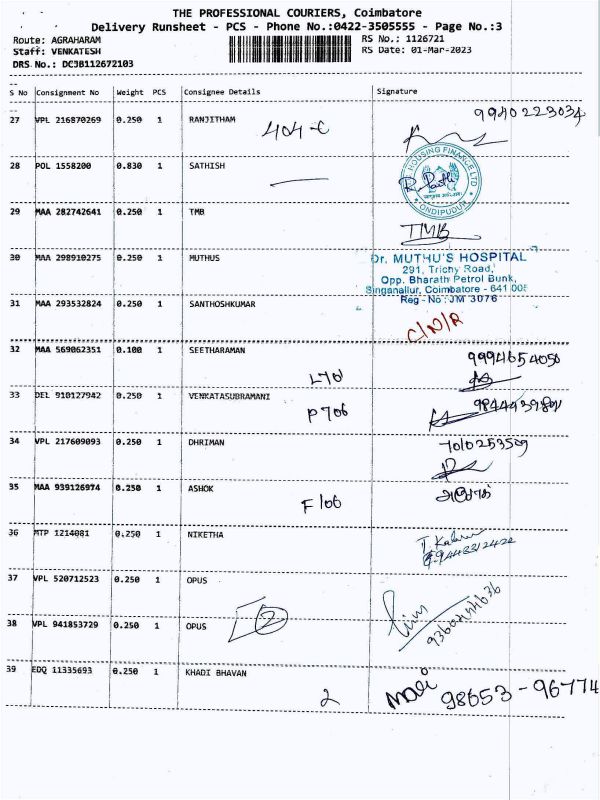 THE PROFESSIONAL COURIERS, Coimbatore
Delivery Runsheet - PCS - Phone No.:0422-3505555 - Page No.:3
Route: AGRAHARAM RS No.: 1126721
Staff: VENKATESH RS Date: 01-Mar-2023
DRS No.: DC3B112672103
S No Consignment No Weight PCS Consignee Details Signature
27 VPL 216870269 0.250 1 RANJITHAM 9940223034
404-C
HOUSING FINANCE LTD
28 POL 1558200 0.830 1 SATHISH
ONDIPUDUR
29 MAA 282742641 0.250 1 TMB
TMB
30 MAA 298910275 0.250 1 MUTHUS Dr. MUTHU'S HOSPITAL
291, Trichy Road,
Opp. Bharath Petrol Bunk,
Singanallur, Coimbatore - 641 005
Reg - No : JM 3076
31 MAA 293532824 0.250 1 SANTHOSHKUMAR
C/N/R
32 MAA 569062351 0.100 1 SEETHARAMAN 9994654056
L701
33 DEL 910127942 0.250 1 VENKATASUBRAMANI
P706
34 VPL 217609093 0.250 1 DHRIMAN 7010253509
35 MAA 939126974 0.250 1 ASHOK அசோக்
F106
36 MTP 1214081 0.250 1 NIKETHA
37 VPL 520712523 0.250 1 OPUS
38 VPL 941853729 0.250 1 OPUS
2
39 EDQ 11335693 0.250 1 KHADI BHAVAN
2 Mani 98653-96774